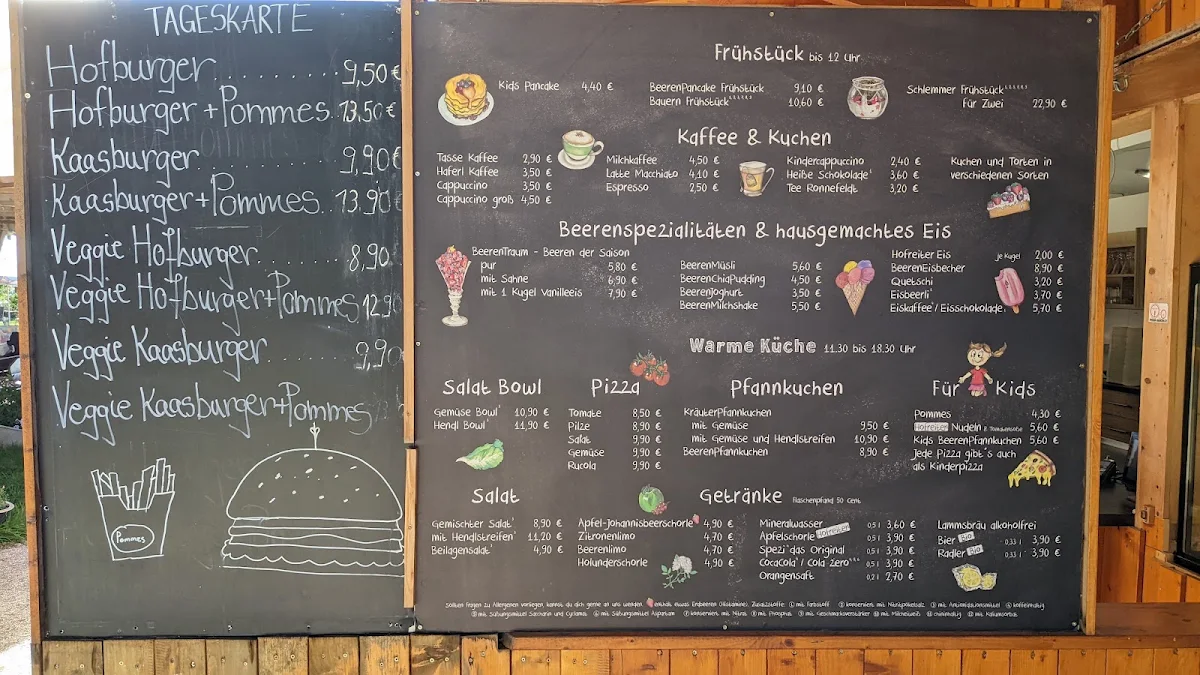 TAGESKARTE
Hofburger.............9,50€
Hofburger+Pommes.13,50€
Kaasburger............9,90€
Kaasburger+Pommes..13,90€
Veggie Hofburger........8,90
Veggie Hofburger+Pommes 12,90
Veggie Kaasburger........9,90
Veggie Kaasburger+Pommes
Pommes
Frühstück bis 12 Uhr
Kids Pancake 4,40 €
BeerenPancake Frühstück 9,10 €
Bauern Frühstück 10,60 €
Schlemmer Frühstück
für Zwei 22,90 €
Kaffee & Kuchen
Tasse Kaffee 2,90 €
Haferl Kaffee 3,50 €
Cappuccino 3,50 €
Cappuccino groß 4,50 €
Milchkaffee 4,50 €
Latte Macchiato 4,10 €
Espresso 2,50 €
Kindercappuccino 2,40 €
Heiße Schokolade 3,60 €
Tee Ronnefeldt 3,20 €
Kuchen und Torten in
verschiedenen Sorten
Beerenspezialitäten & hausgemachtes Eis
BeerenTraum - Beeren der Saison
pur 5,80 €
mit Sahne 6,90 €
mit 1 Kugel Vanilleeis 7,90 €
BeerenMüsli 5,60 €
BeerenChiaPudding 4,50 €
BeerenJoghurt 3,50 €
BeerenMilchshake 5,50 €
Hofreiter Eis je Kugel 2,00 €
BeerenEisbecher 8,90 €
Quetschi 3,20 €
Eisbeerli 3,70 €
Eiskaffee / Eisschokolade 5,70 €
Warme Küche 11.30 bis 18.30 Uhr
Salat Bowl
Gemüse Bowl 10,90 €
Hendl Bowl 11,90 €
Pizza
Tomate 8,50 €
Pilze 8,90 €
Salat 9,90 €
Gemüse 9,90 €
Rucola 9,90 €
Pfannkuchen
KräuterPfannkuchen
mit Gemüse 9,50 €
mit Gemüse und Hendlstreifen 10,90 €
BeerenPfannkuchen 8,90 €
Für Kids
Pommes 4,30 €
Hofreiter Nudeln & Tomatensoße 5,60 €
Kids BeerenPfannkuchen 5,60 €
Jede Pizza gibt's auch
als Kinderpizza
Salat
Gemischter Salat 8,90 €
mit Hendlstreifen 11,20 €
Beilagensalat 4,90 €
Getränke Flaschenpfand 50 Cent
Apfel-Johannisbeerschorle 4,90 €
Zitronenlimo 4,70 €
Beerenlimo 4,70 €
Holunderschorle 4,90 €
Mineralwasser 0,5 l 3,60 €
Apfelschorle Hofreiter 0,5 l 3,90 €
Spezi das Original 0,5 l 3,90 €
CocaCola / Cola Zero 0,5 l 3,90 €
Orangensaft 0,2 l 2,70 €
Lammsbräu alkoholfrei
Bier Bio 0,33 l 3,90 €
Radler Bio 0,33 l 3,90 €
Sollten Fragen zu Allergenen vorliegen, kannst du dich gerne an uns wenden.